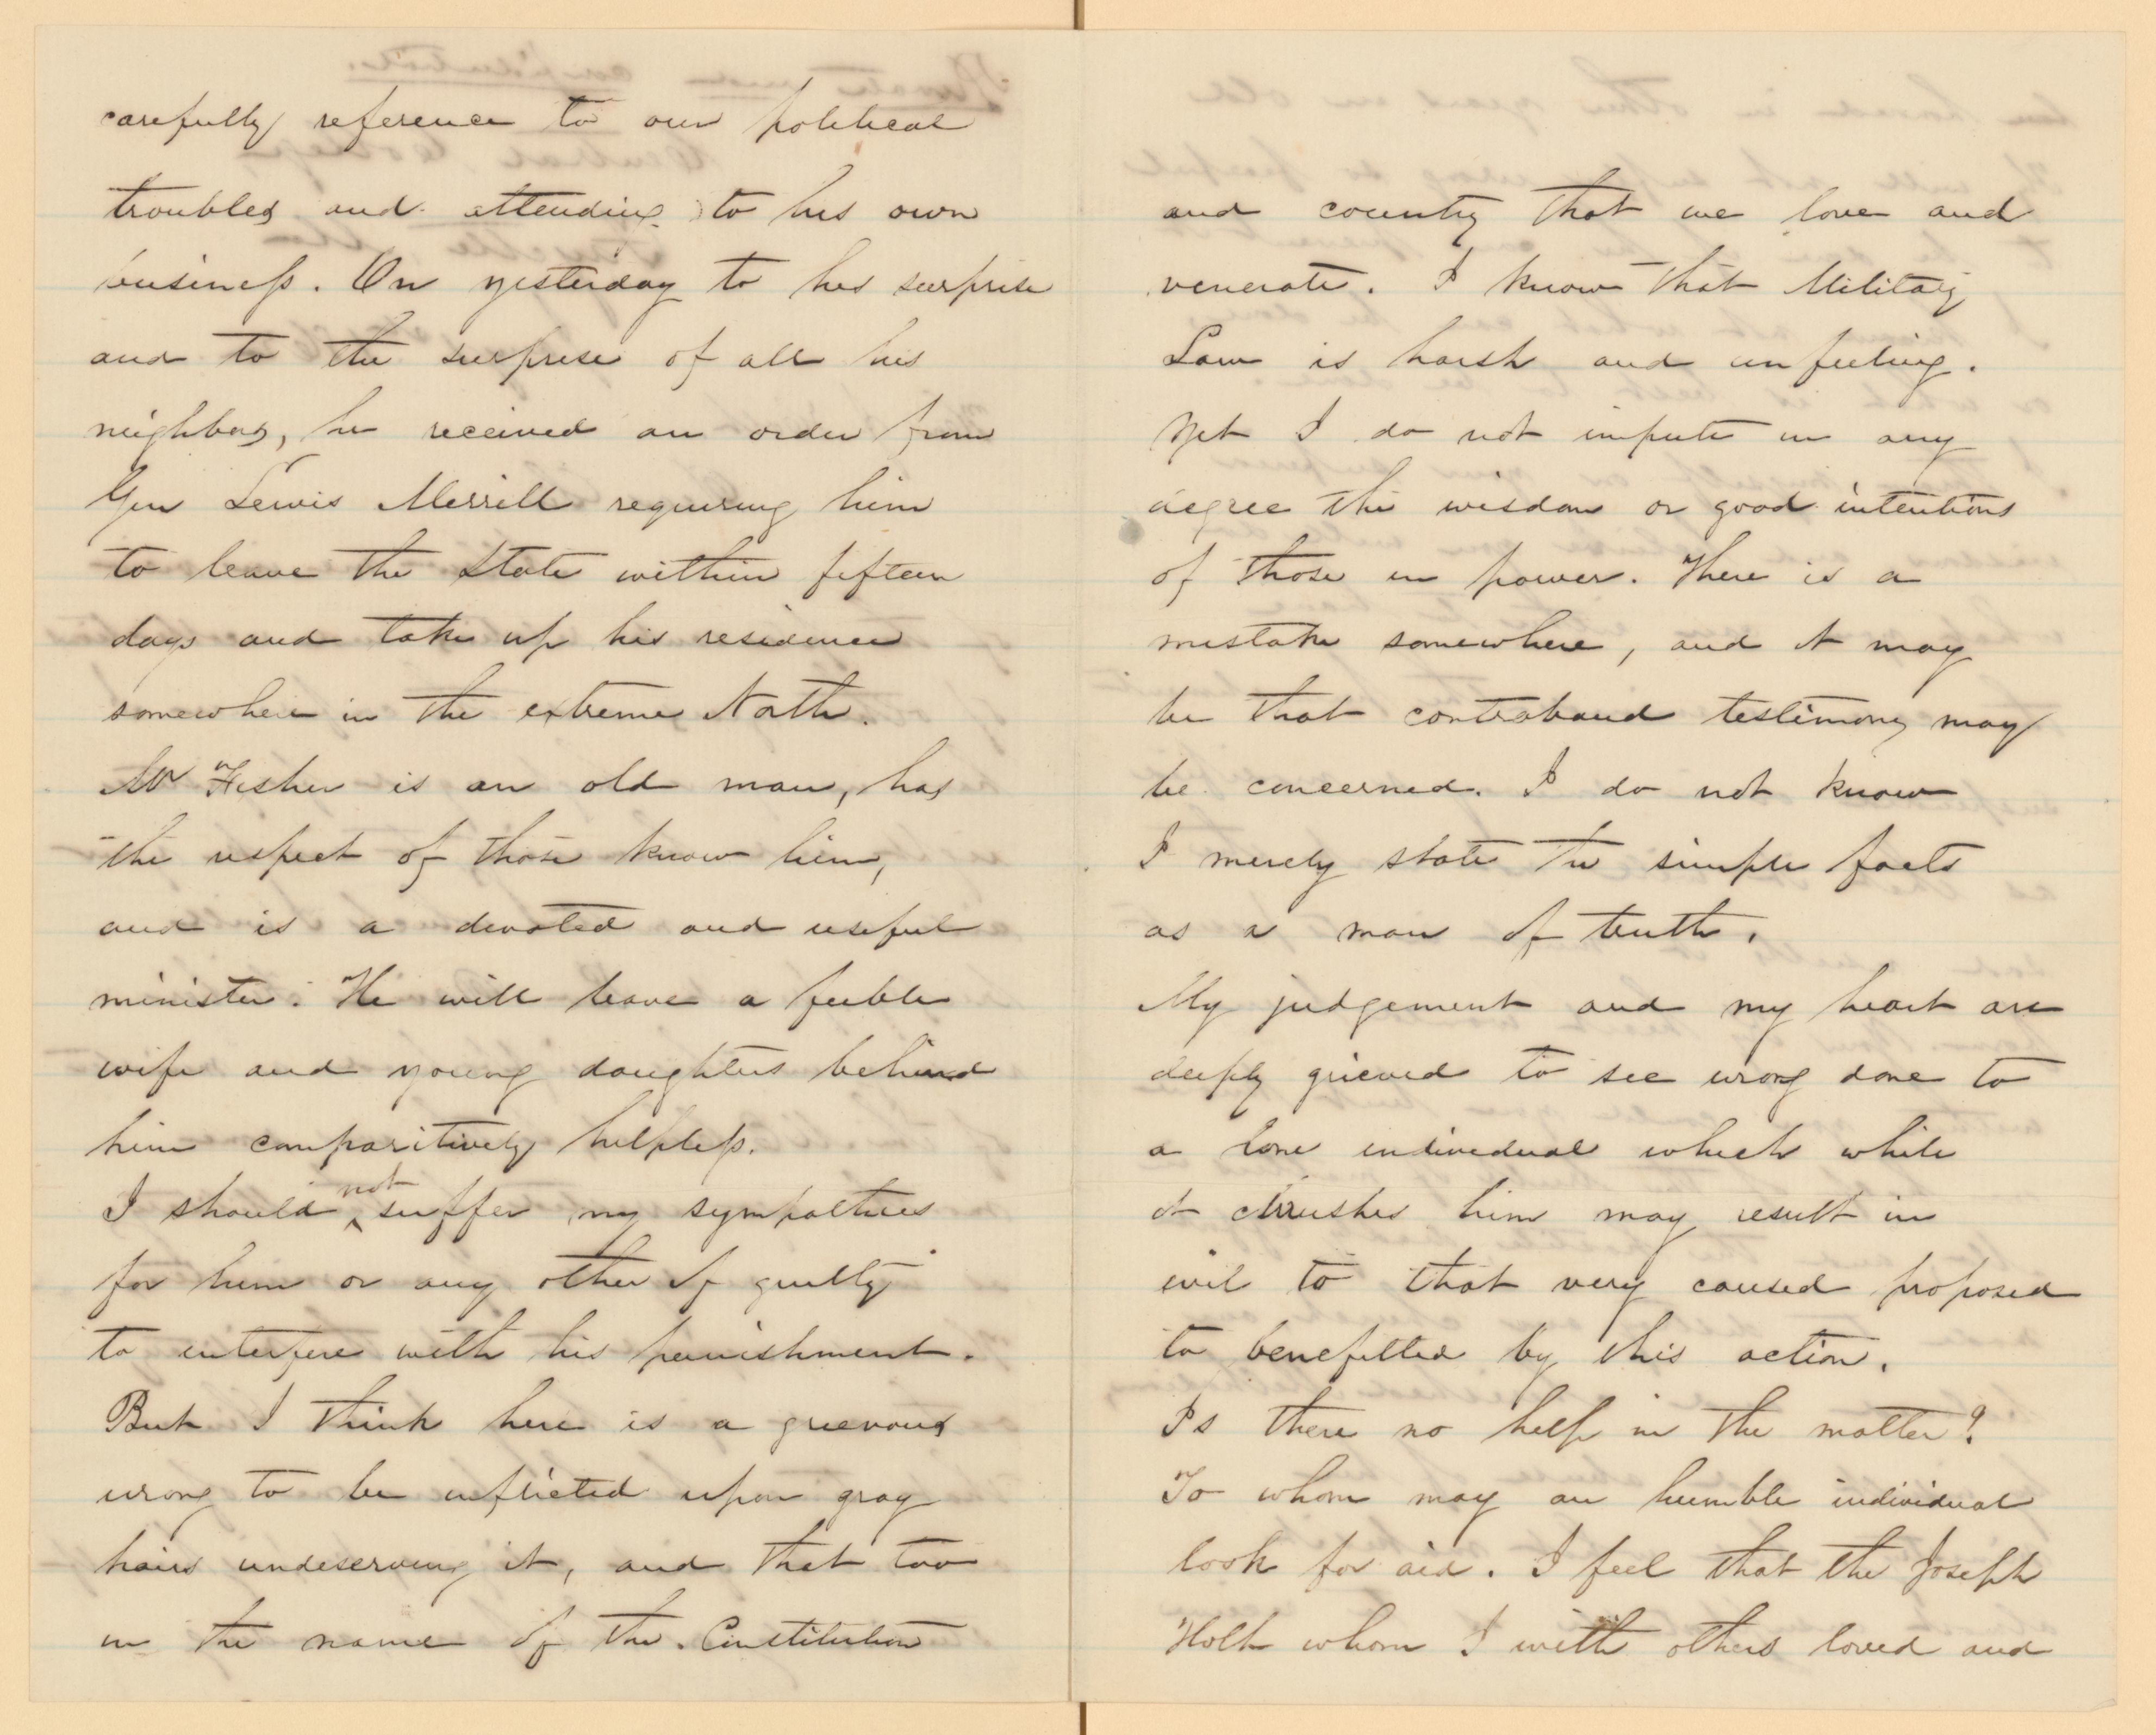 carefully reference to our political
troubles and attending to his own
business. On yesterday to his surprise
and to the surprise of all his
neighbors, he received an order from
Gen Lewis Merrill requiring him
to leave the State within fifteen
days and take up his residence
somewhere in the extreme North.
Mr Fisher is an old man, has
the respect of those know him,
and is a devoted and useful
minister. He will leave a feeble
wife and young daughters behind
him comparitively helpless.
I should not suffer my sympathies
for him or any other if guilty
to interfere with his punishment.
But I think here is a grievous
wrong to be inflicted upon gray
hairs undeserving it, and that too
in the name of the Constitution
and country that we love and
venerate. I know that Military
Law is harsh and unfeeling.
Yet I do not impute in any
degree the wisdom or good intentions
of those in power. There is a
mistake somewhere, and it may
be that contraband testimony may
be concerned. I do not know
I merely state the simple facts
as a man of truth.
My judgement and my heart are
deeply grieved to see wrong done to
a lone individual which while
it crushes him may result in
evil to that very caused proposed
to benefitted by this action.
Is there no help in the matter?
To whom may an humble individual
look for aid. I feel that the Joseph
Holt whom I with others loved and